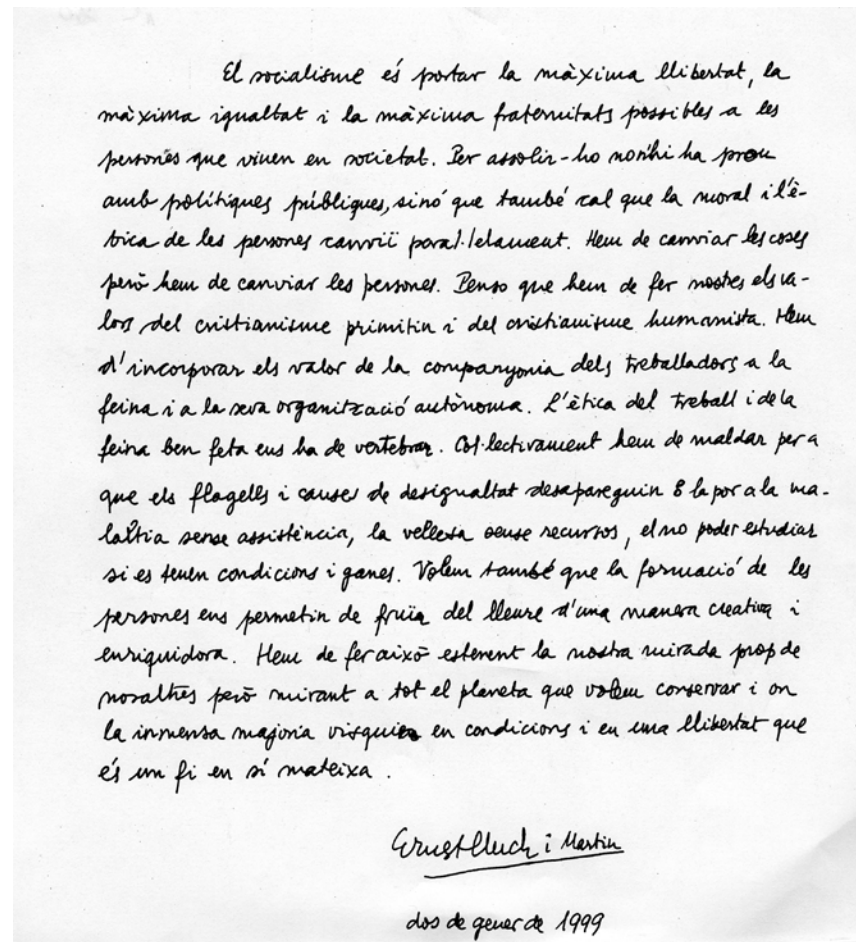 El socialisme és portar la màxima llibertat, la
màxima igualtat i la màxima fraternitats possibles a les
persones que viuen en societat. Per assolir-ho no n'hi ha prou
amb polítiques públiques, sinó que també cal que la moral i l'è-
tica de les persones canviï paral·lelament. Hem de canviar les coses
però hem de canviar les persones. Penso que hem de fer nostres els va-
lors del cristianisme primitiu i del cristianisme humanista. Hem
d'incorporar els valor de la companyonia dels treballadors a la
feina i a la seva organització autònoma. L'ètica del treball i de la
feina ben feta ens ha de vertebrar. Col·lectivament hem de maldar per a
que els flagells i causes de desigualtat desapareguin: la por a la ma-
laltia sense assistència, la vellesa sense recursos, el no poder estudiar
si es tenen condicions i ganes. Volem també que la formació de les
persones ens permetin de fruïa del lleure d'una manera creativa i
enriquidora. Hem de fer això estenent la nostra mirada prop de
nosaltres però mirant a tot el planeta que volem conservar i on
la inmensa majoria visquin en condicions i en una llibertat que
és un fi en sí mateixa.
Ernest Lluch i Martin
dos de gener de 1999